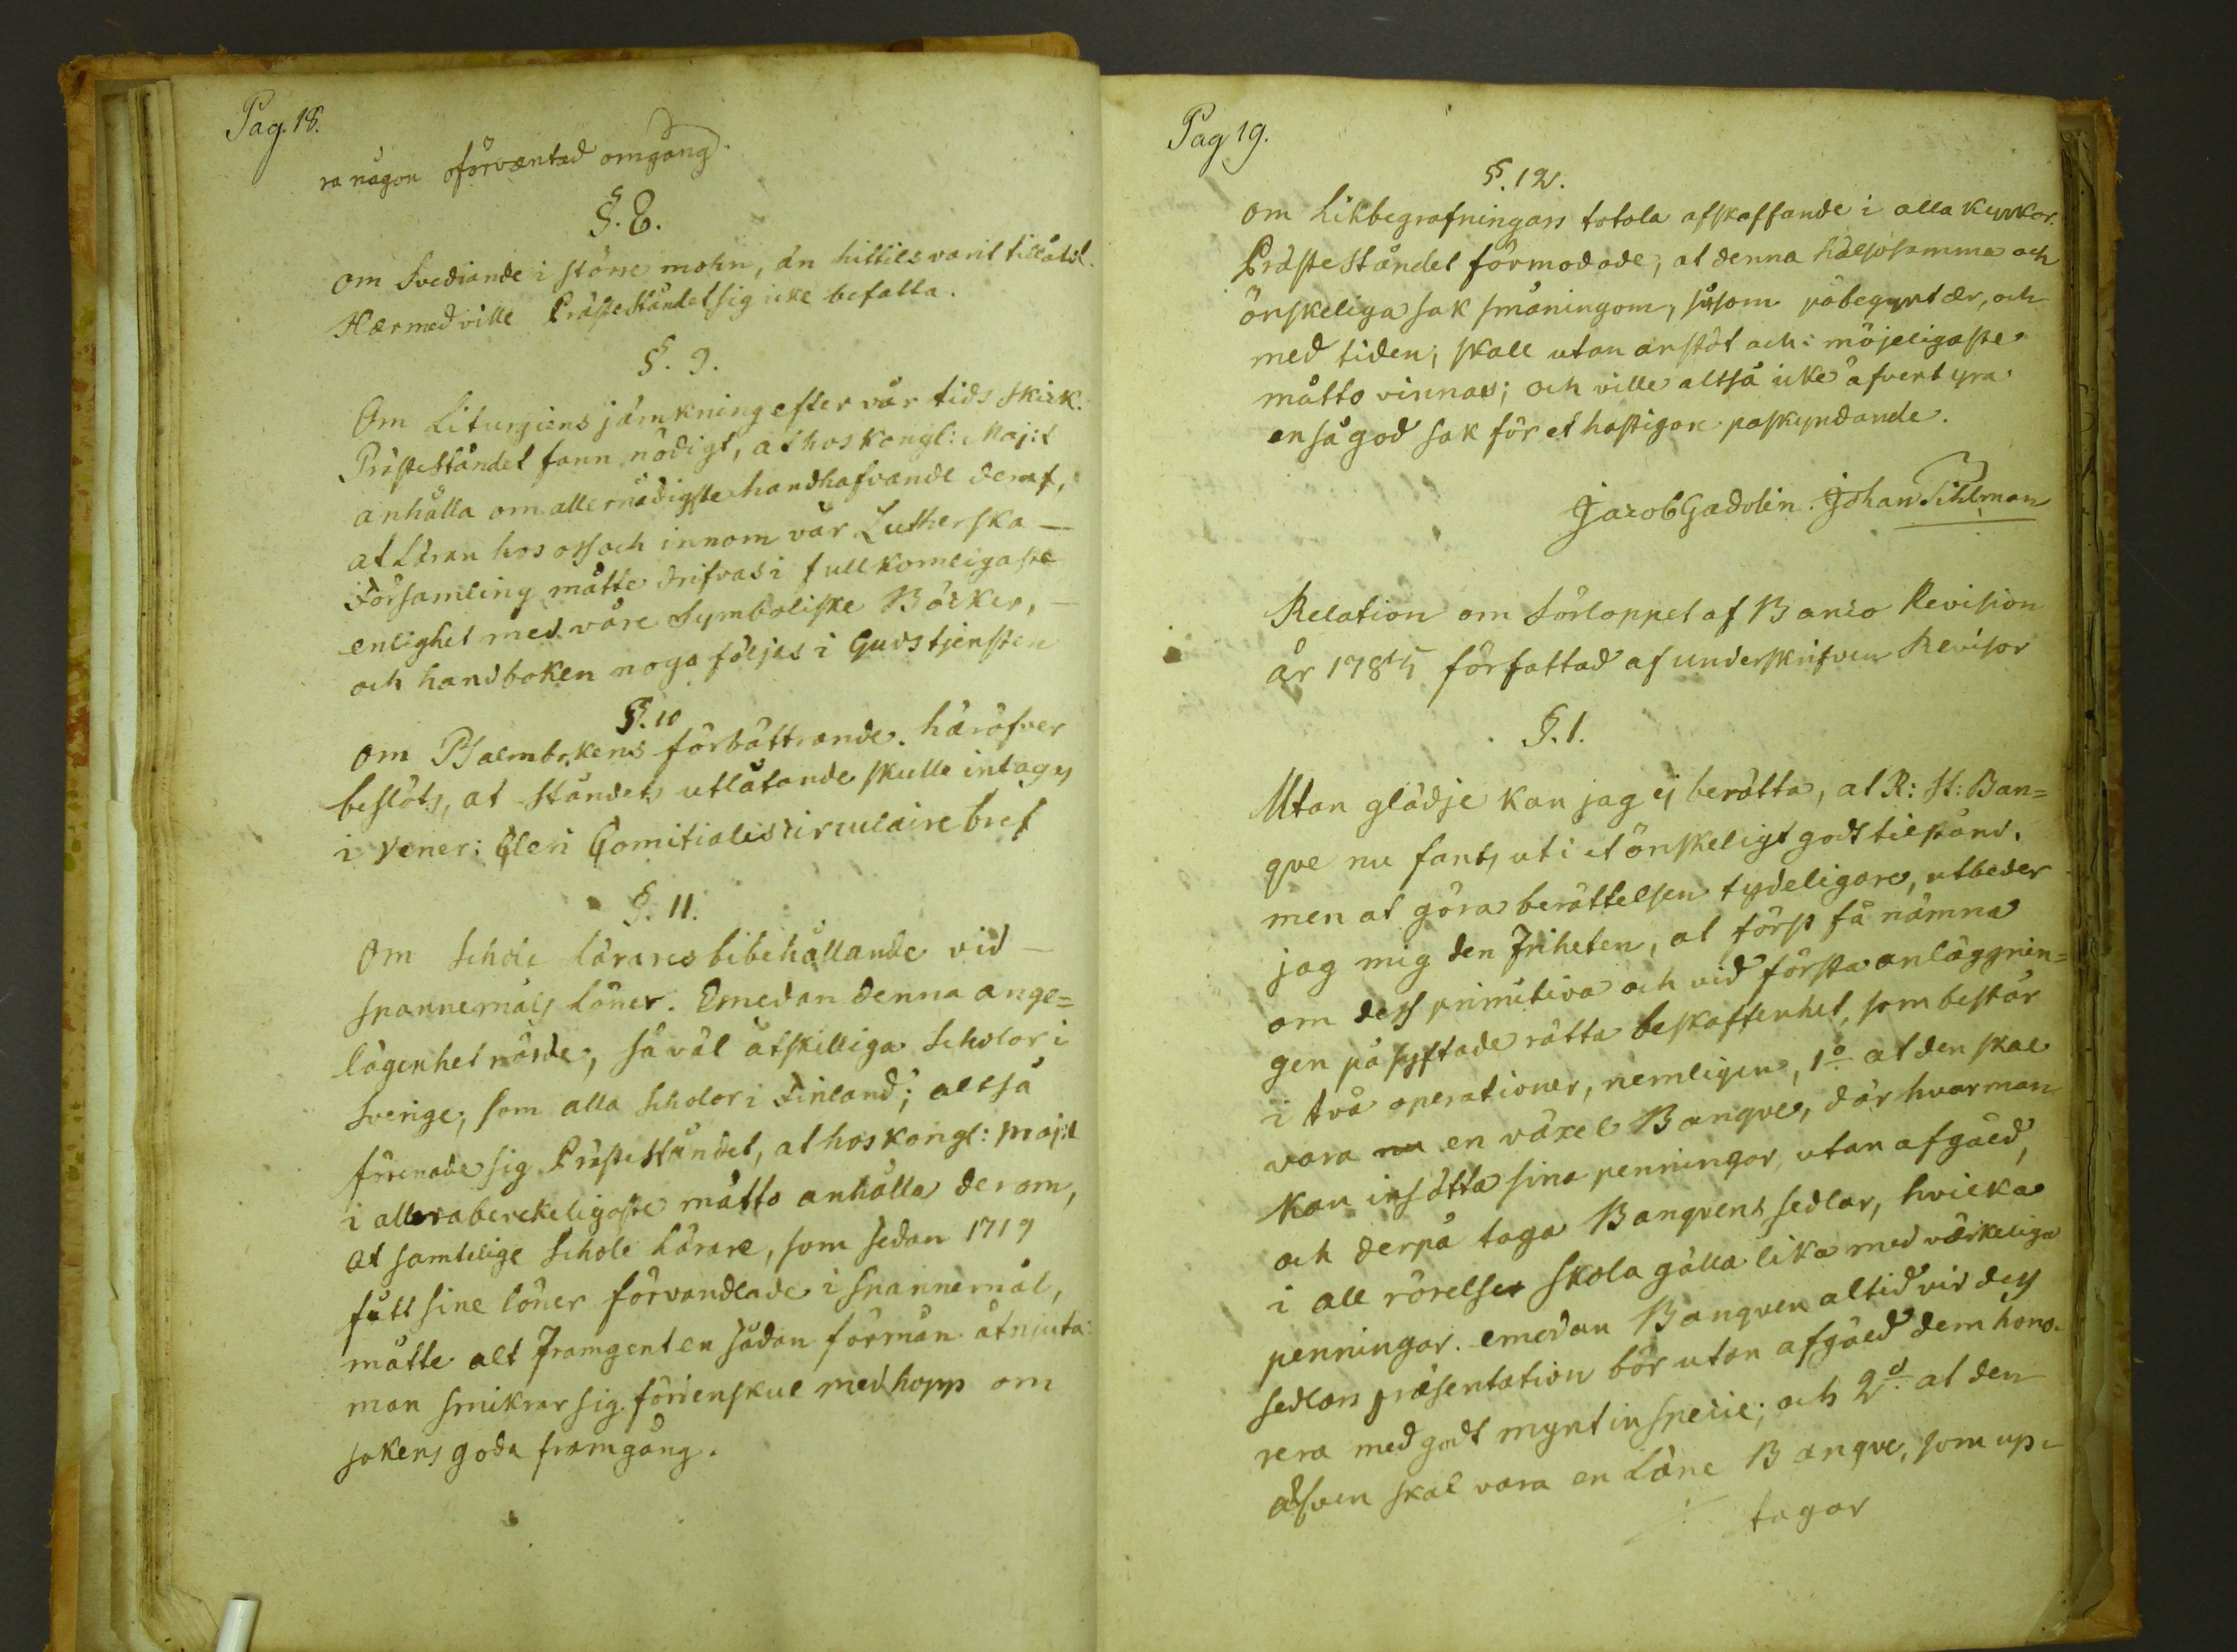 Pag. 18.
ra någon oförväntad omgång.
§. 8.
Om Svediande i större mohn, än hittils varit tillåtel.
Härmed ville PrästeStåndet sig icke befatta.
§. 9.
Om Liturgiens jämkning efter vår tids skick.
PrästeStåndet fann nödigt, at hos Kongl: Maj:t
anhålla om allernådigste handhafvande deraf,
at Läran hos oss och innom vår Lutherska —
Församling måtte drifvas i fullkomligaste
enlighet med våre Symboliske Böcker, —
och handboken noga följas i Gudstjensten
§. 10
Om Psalmbokens förbättrande. häröfver
beslöts, at Ståndets utlåtande skulle intagas
i Vener: Cleri Comitialis circulaire bref
§. 11.
Om Schole Lärares bibehållande vid —
spannemåls Löner. Emedan denna ange=
lägenhet rörde, så väl åtskilliga Scholor i
Sverige, som alla Scholor i Finland; altså
förenade sig PrästeStåndet, at hos Kongl: Maj:t
i allra bevekeligaste måtto anhålla derom,
at samtelige Schole Lärare, som sedan 1719
fått sine löner förvandlade i Spannemål,
måtte alt framgent en sådan förmån åtnjuta:
man smikrar sig förienskul med hopp om
sakens goda framgång.
Pag 19.
§. 12.
Om Likbegrafningars totala afskaffande i alla kyrkor.
PrästeStåndet förmodade, at denna hälsosamma och
önskeliga sak småningom, såsom påbegynt är, och
med tiden, skall utan anstöt och i möjeligaste
måtto vinnas; och ville altså icke äfventyra
en så god sak för et hastigare påskyndande.
Jacob Gadolin. Johan Tihlman
Relation om Förloppet af Banco Revision
år 1785 författad af underskrifven Revisor
§. 1.
Utan glädje kan jag ej berätta, at R: St: Ban=
qve nu fants uti et önskeligt godt tilstånd,
men at göra berättelsen tydeligare, utbeder
jag mig den friheten, at först få nämna
om dess primitiva och vid första anläggnin=
gen påsyftade rätta beskaffenhet, som består
i två operationer, nemligen, 1o at den skal
vara en växel Banqve, där hvar man
kan insätta sina penningar, utan afgäld,
och derpå taga Banqvens sedlar, hvilka
i all rörelse skola gälla lika med värkeliga
penningar. emedan Banqven altid vid dess
sedlars præsentation bör utan afgäld dem hono-
rera med godt mynt in specie; och 2o at den
äfven skal vara en Låne Banqve, som up-
tagar